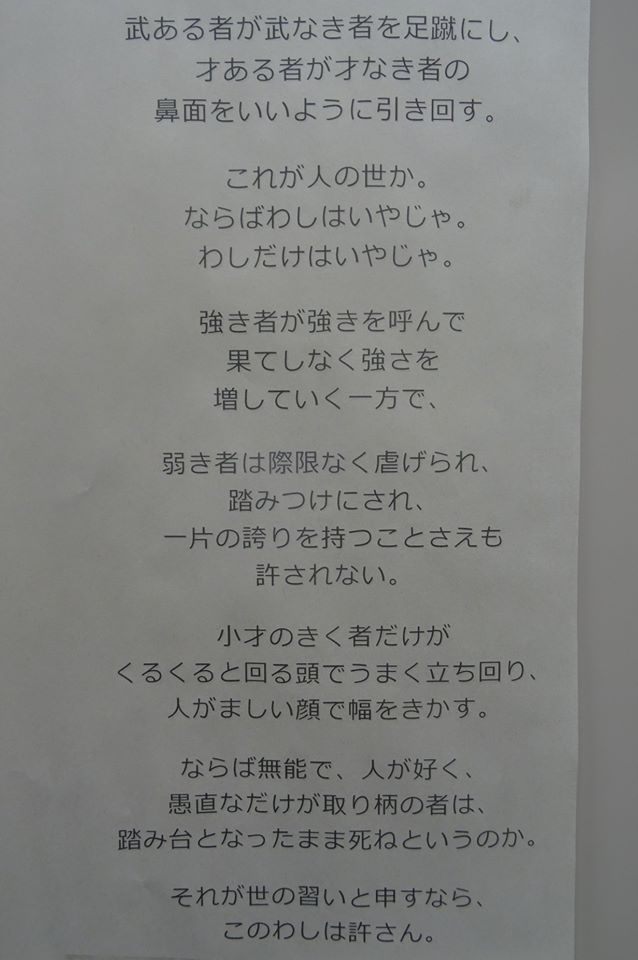 武ある者が武なき者を足蹴にし、
才ある者が才なき者の
鼻面をいいように引き回す。
これが人の世か。
ならばわしはいやじゃ。
わしだけはいやじゃ。
強き者が強きを呼んで
果てしなく強さを
増していく一方で、
弱き者は際限なく虐げられ、
踏みつけにされ、
一片の誇りを持つことさえも
許されない。
小才のきく者だけが
くるくると回る頭でうまく立ち回り、
人がましい顔で幅をきかす。
ならば無能で、人が好く、
愚直なだけが取り柄の者は、
踏み台となったまま死ねというのか。
それが世の習いと申すなら、
このわしは許さん。